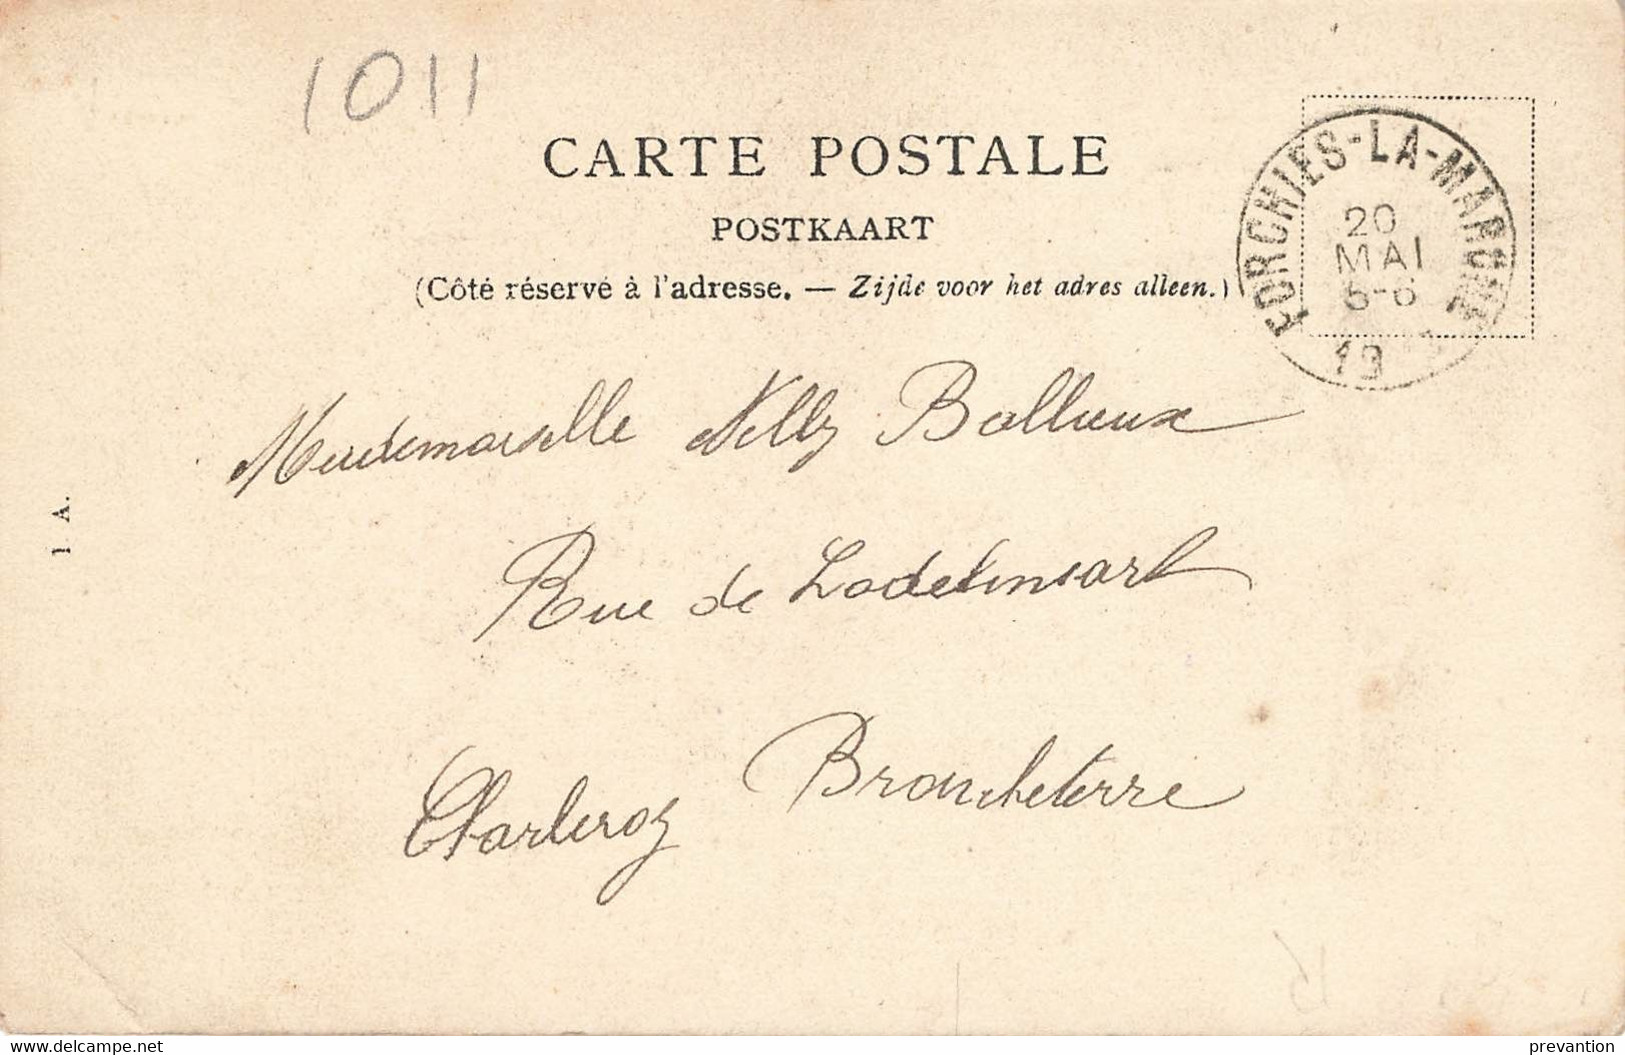 1011
CARTE POSTALE
POSTKAART
(Côté réservé à l'adresse. — Zijde voor het adres alleen.)
FORCHIES-LA-MARCHE
20
MAI
5-6
19
Mademoiselle Nelly Ballieux
Rue de Lodelinsart
Charleroy Broucheterre
1 A.
www.delcampe.net
prevantion